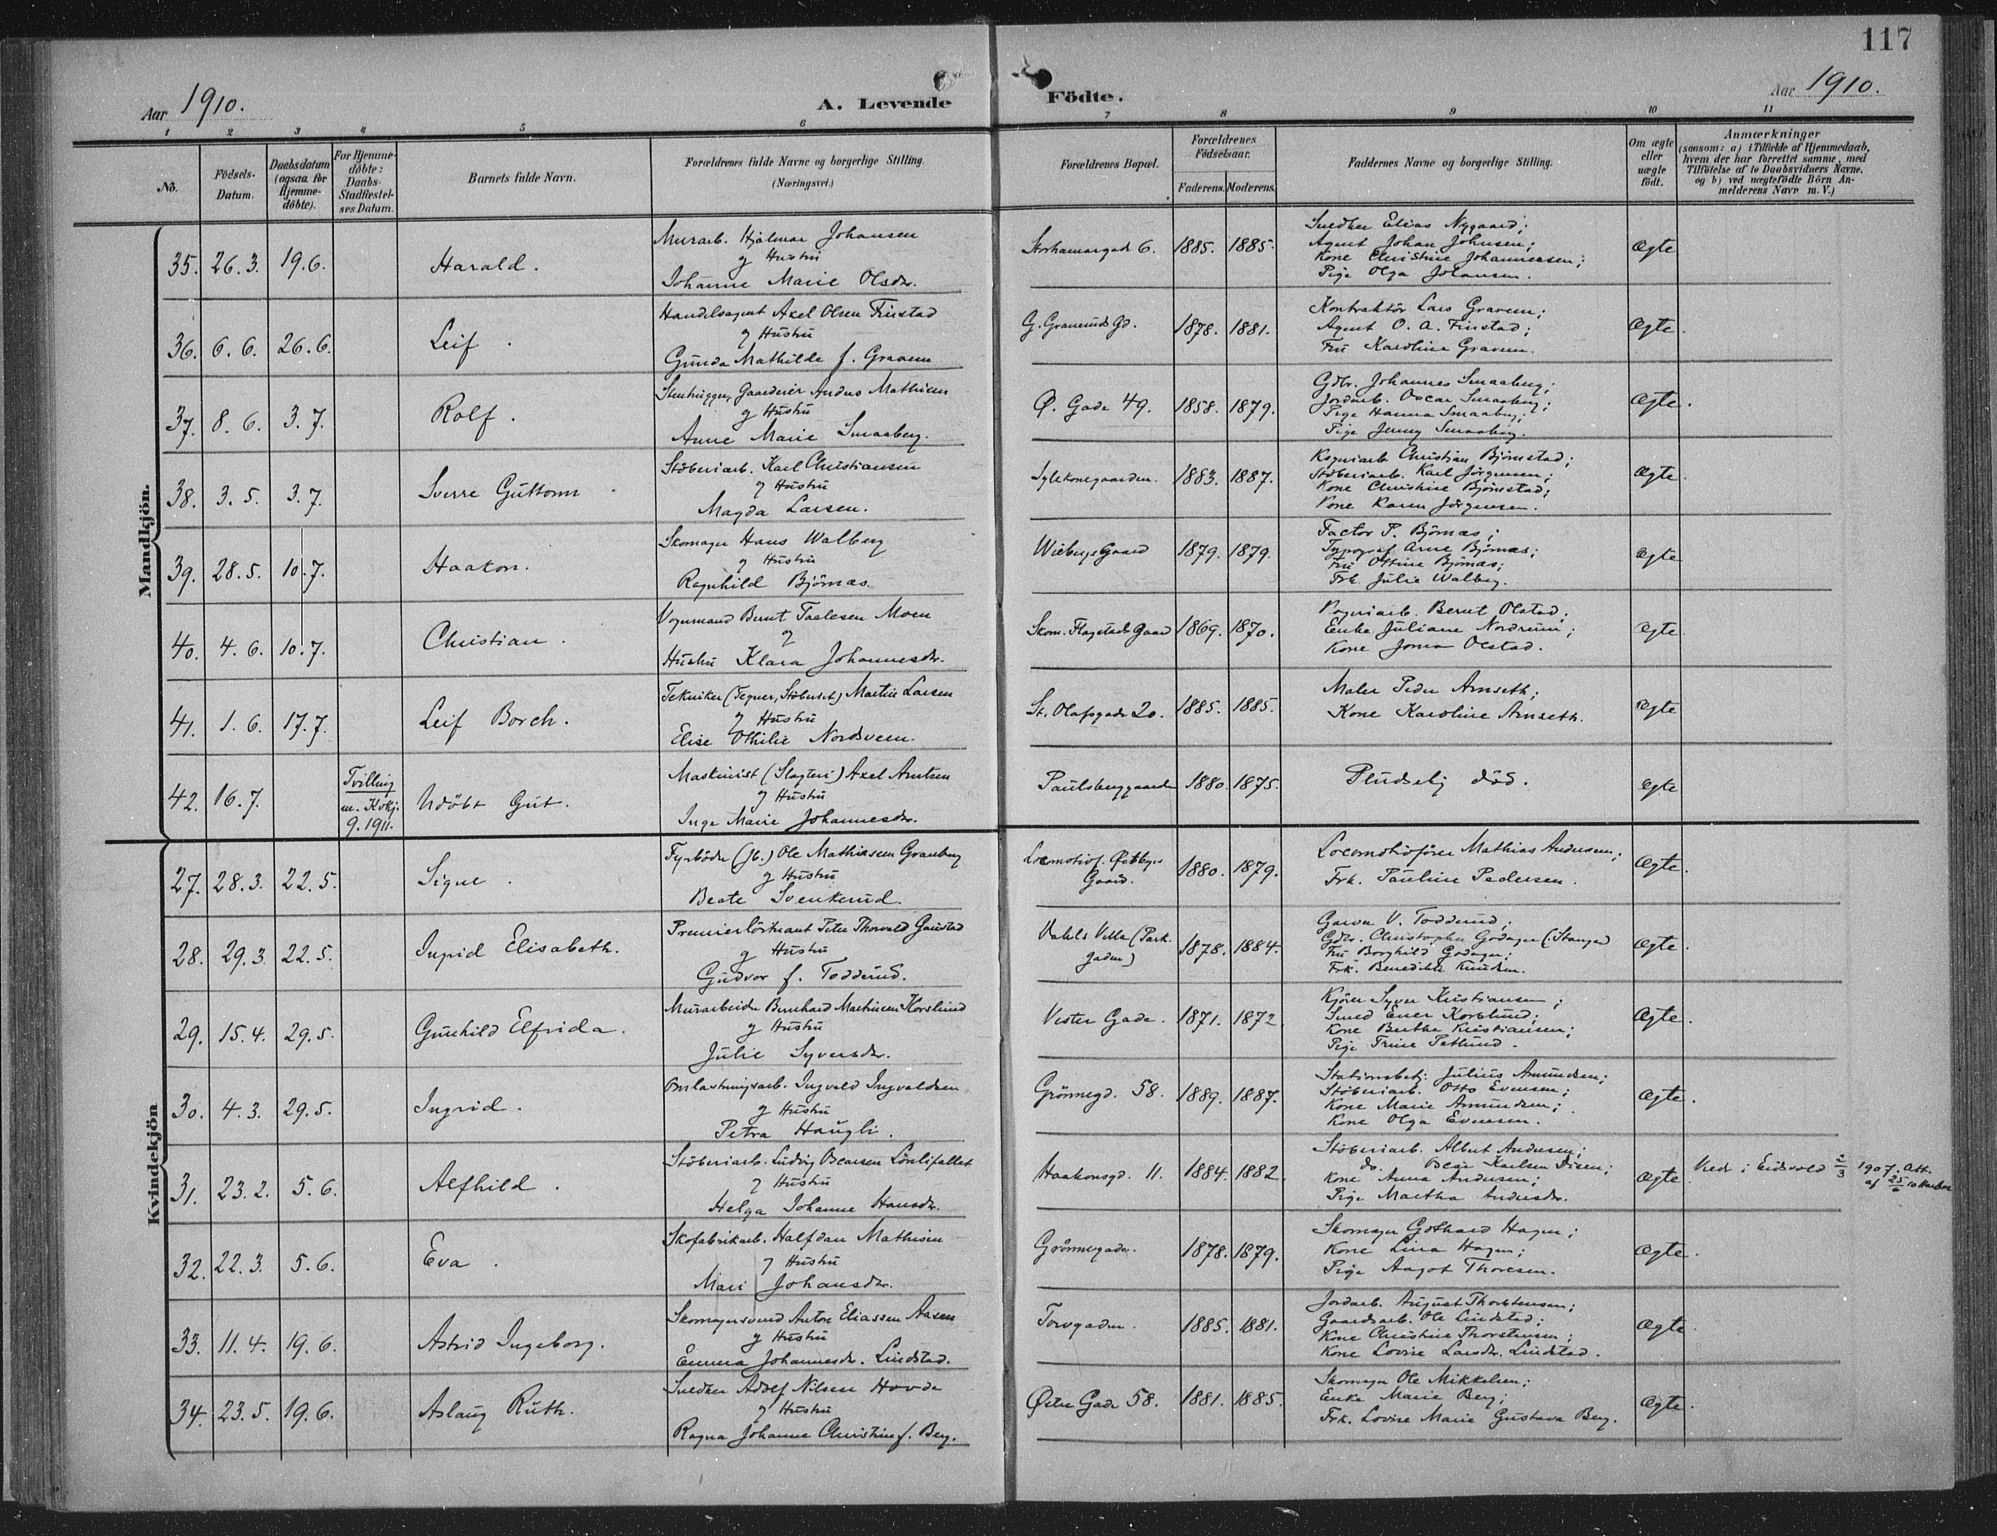 117
Aar 1910.
A. Levende Födte.
Aar 1910.
1 2 3 4 5 6 7 8 9 10 11
No.
Födsels-Datum.
Daabsdatum (ogsaa for Hjemme-döbte).
For Hjemme-döbte: Daabs-Stadfæstel-ses Datum.
Barnets fulde Navn.
Forældrenes fulde Navne og borgerlige Stilling. (Næringsvei.)
Forældrenes Bopæl.
Forældrenes Födselsaar.
Faderens. Moderens.
Faddernes Navne og borgerlige Stilling.
Om ægte eller uægte födt.
Anmærkninger
(saasom: a) i Tilfælde af Hjemmedaab, hvem der har forrettet samme, med Tilföielse af to Daabsvidners Navne, og b) ved uægtefödte Börn An-melderens Navn m. V.)
Mandkjön.
35. 26.3. 19.6. Harald.
Murarb. Hjalmar Johansen
og Hustru
Johanne Marie Olsdr.
6. 1885. 1885.
Snedker Elias Nygaard;
Agent Johan Johnsen;
Kone Christine Johannessen;
Pige Olga Johansen.
Ægte
36. 6.6. 26.6. Leif.
Handelsagent Axel Olsen Finstad
og Hustru
Gunda Mathilde f. Gravem
1878. 1881.
Kontraktör Lars Gravem;
Agent O. A. Finstad;
Fru Karoline Gravem.
Ægte.
37. 8.6. 3.7. Rolf.
Stenhugger, Gaardeier Anders Mathisen
og Hustru
Anne Marie Smaaberg.
Ø. Gade 49. 1858. 1879.
Gdbr. Johannes Smaaberg;
Jordarb. Oscar Smaaberg;
Pige Hanna Smaaberg;
Pige Jenny Smaaberg.
Ægte.
38. 3.5. 3.7. Sverre Guttorm
Stöberiarb. Karl Christiansen
og Hustru
Magda Larsen.
1883. 1887.
Christian Björnstad;
Stöberiarb. Karl Jörgensen;
Kone Christine Björnstad;
Kone Karen Jörgensen.
Ægte
39. 28.5. 10.7. Haakon.
Skomager Hans Walberg
og Hustru
Ragnhild Björnaas.
Wibergs Gaard 1879. 1879.
Factor P. Björnaas;
Typograf Arne Björnaas;
Fru Ottine Björnaas;
Frk. Julie Walberg.
Ægte
40. 4.6. 10.7. Christian.
Vognmand Bernt Taalesen Moen
og
Hustru Klara Johannesdr.
Skom. Flagstads Gaard 1869. 1870.
Bernt Olstad;
Enke Juliane Nordrum;
Kone Olstad.
Ægte
41. 1.6. 17.7. Leif Borch.
Tekniker (Tegner, Stöberiet) Martin Larsen
og Hustru
Elise Othilie Nordsveen.
St. Olafsgade 20. 1885. 1885.
Maler Peder Arnseth;
Kone Karoline Arnseth.
Ægte
42. 16.7. Tvilling
9. 1911.
Udöbt Gut.
Maskinist (Slagteri) Axel Arntsen
og Hustru
Inga Marie Johannesdr.
Paulsberggaarden 1880. 1875.
Pludselig död.
Ægte
Kvindekjön
27. 28.3. 22.5. Signe.
Fyrböder (Jb.) Ole Mathiasen Granberg
og Hustru
Beate Svenkerud.
Gaard. 1880. 1879.
Locomotivförer Mathias Andersen;
Frk. Pauline Pedersen.
Ægte.
28. 29.3. 22.5. Ingrid Elisabeth.
Premierlöitnant Peter Thorvald Gaustad
og Hustru
Gudvor f. Todderud.
Dahls Villa (Park-gaden) 1878. 1884.
Garver V. Todderud;
Gdbr. Christopher Godager (Stange)
Fru Borghild Godager;
Frk. Benedikte Knudsen.
Ægte.
29. 15.4. 29.5. Gunhild Elfrida.
Murarbeider Bernhard Martinsen Korslund
og Hustru
Julie Syversdr.
Vester Gade. 1871. 1872.
Kjörer Syver Kristiansen;
Smed Korslund;
Kone Berthe Kristiansen;
Pige Trine
Ægte.
30. 4.3. 29.5. Ingrid.
Omlastningsarb. Ingvald Ingvaldsen
og Hustru
Petra Haugli.
Grönnegd. 58. 1889. 1887.
Stationsbetj. Julius Amundsen;
Stöberiarb. Otto Evensen;
Kone Marie Amundsen;
Kone Olga Evensen.
Ægte.
31. 23.2. 5.6. Alfhild.
Stöberiarb. Ludvig Oscarsen Lönlifallet
og Hustru
Helga Johanne Hansdr.
Haakonsgd. 11. 1884. 1882.
Stöberiarb. Albert Andersen;
do. Oscar Karlsen Disen;
Kone Anna Andersen;
Pige Martha Andersdr.
Ægte
Vied i Eidsvold 2/3 1907. Att. af 25/6 10
32. 22.3. 5.6. Eva.
Skofabrikarb. Halfdan Mathisen
og Hustru
Mari Johansdr.
Grönnegaden. 1878. 1879.
Skomager Gothard Hagen;
Kone Lina Hagen;
Pige Aagot Thoresen.
Ægte.
33. 11.4. 19.6. Astrid Ingeborg.
Skomagersvend Anton Eliassen Aasen
og Hustru
Emma Johannesdr. Lindstad.
Torvgaden. 1885. 1881.
Jordarb. August Thorstensen;
Gaardsarb. Ole Lindstad;
Kone Christine Thorstensen;
Kone Lovise Larsdr. Lindstad.
Ægte
34. 23.5. 19.6. Aslaug Ruth.
Snedker Adolf Nilsen Hovde
og Hustru
Ragna Johanne Christine f. Berg.
Østre Gade 58. 1881. 1885.
Skomager Ole Mikkelsen;
Enke Marie Berg;
Frk. Lovise Marie Gustava Berg.
Ægte.